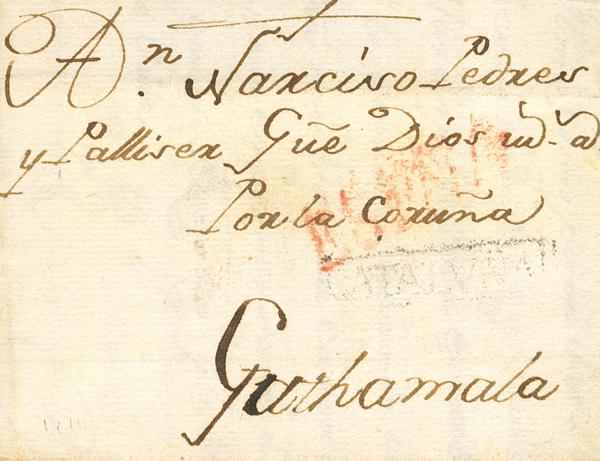 A Dn. Narciso Pedres
y Palliser Gue Dios
Por la Coruña
CATALUÑA
Guthamala